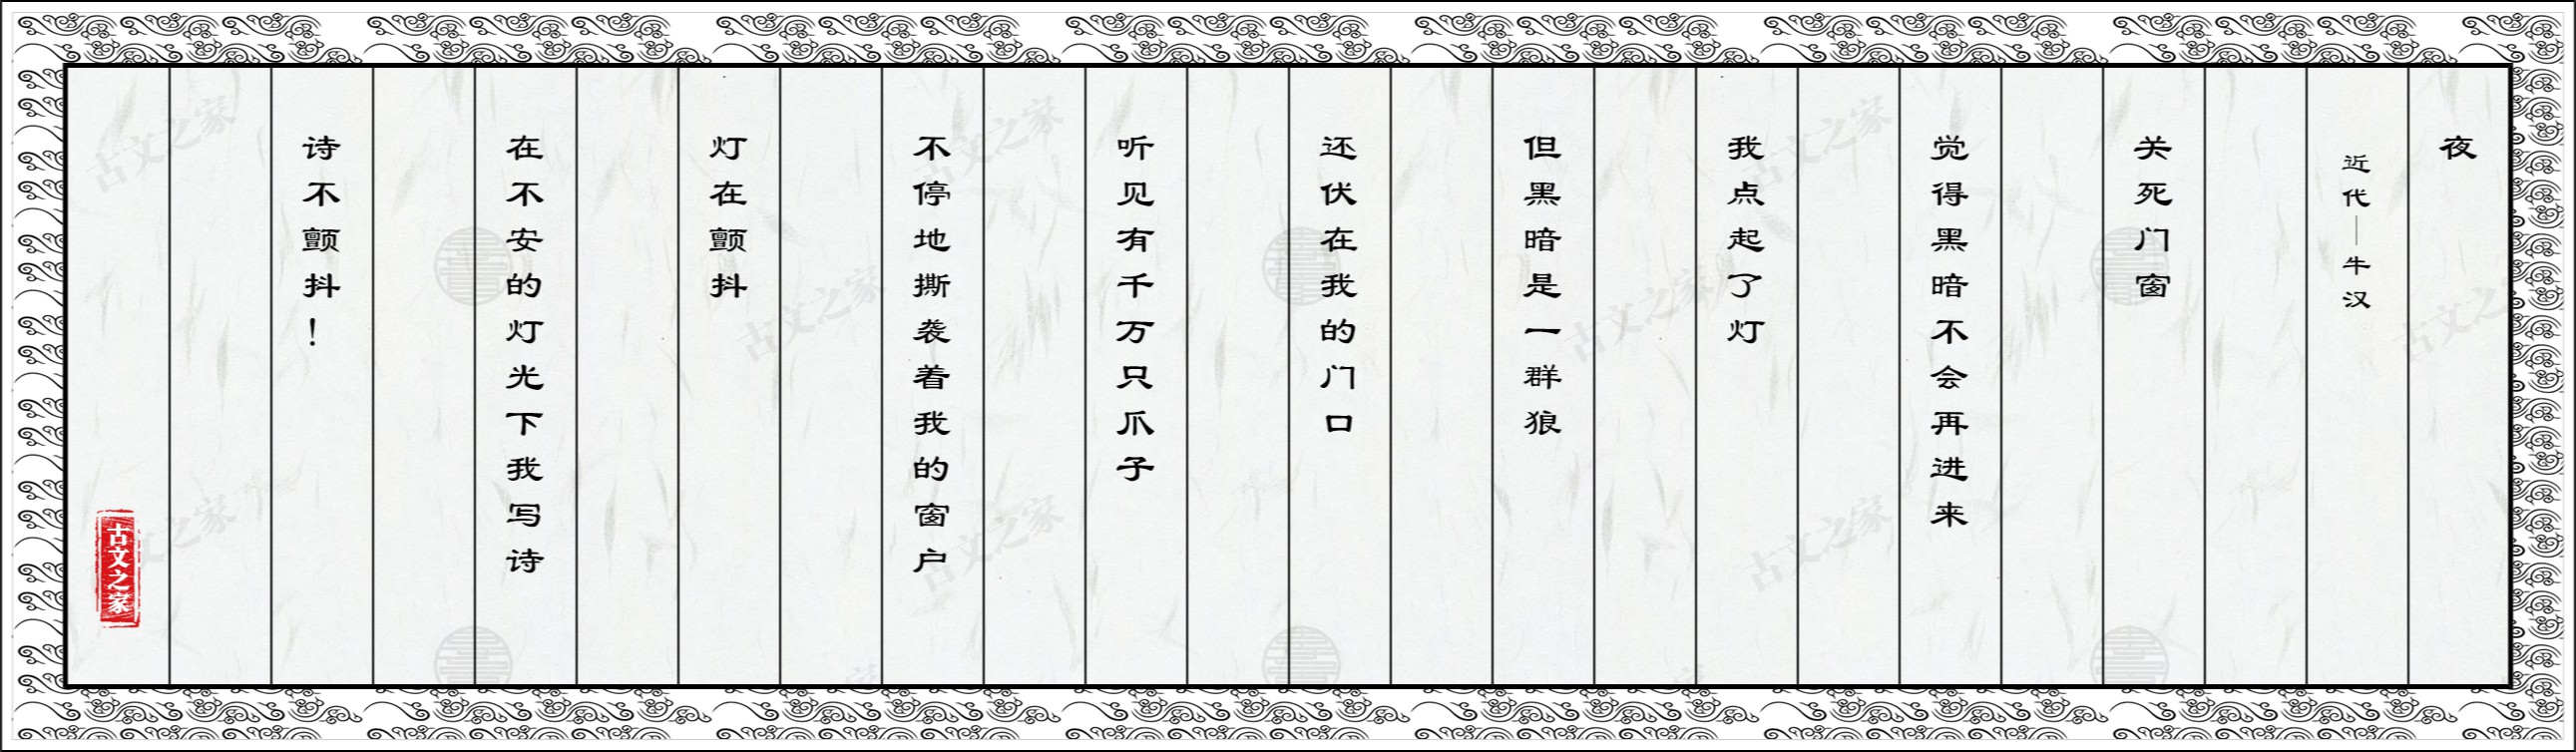 夜
近代｜牛汉
关死门窗
觉得黑暗不会再进来
我点起了灯
但黑暗是一群狼
还伏在我的门口
听见有千万只爪子
不停地撕袭着我的窗户
灯在颤抖
在不安的灯光下我写诗
诗不颤抖！
古文之家